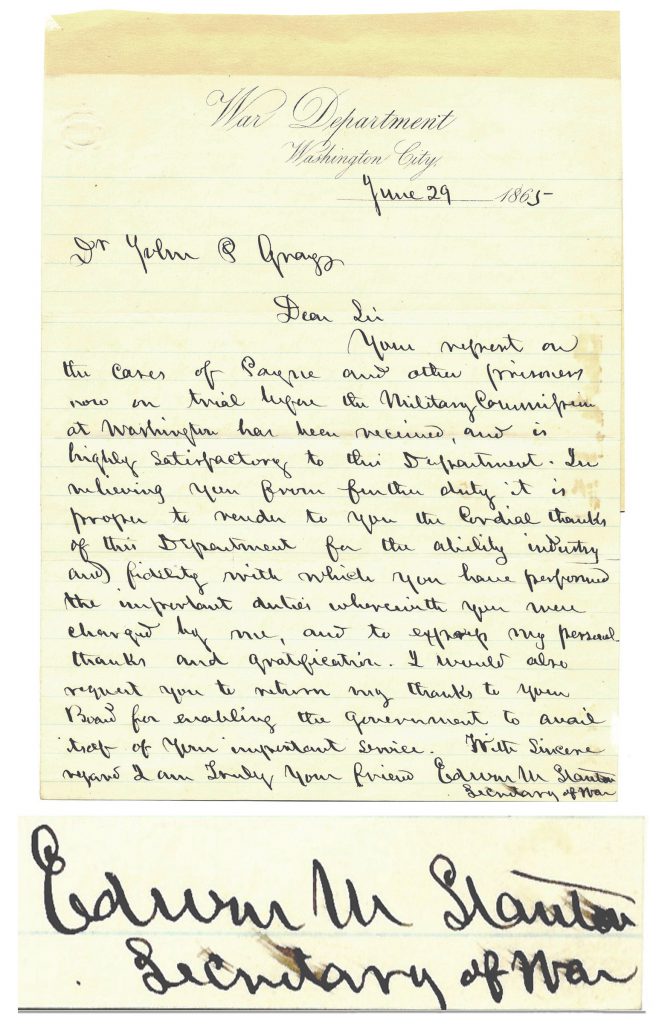 War Department
Washington City,
June 29 1865
Dr John P Gray
Dear Sir
Your report on
the cases of Payne and other prisoners
now on trial before the Military Commission
at Washington has been received, and is
highly Satisfactory to this Department. In
relieving you from further duty it is
proper to render to you the Cordial thanks
of this Department for the ability industry
and fidelity with which you have performed
the important duties wherewith you were
charged by me, and to express my personal
thanks and gratification. I would also
request you to return my thanks to your
Board for enabling the Government to avail
itself of your important service. With Sincere
regard I am Truly Your friend Edwin M Stanton
Secretary of War
Edwin M Stanton
Secretary of War